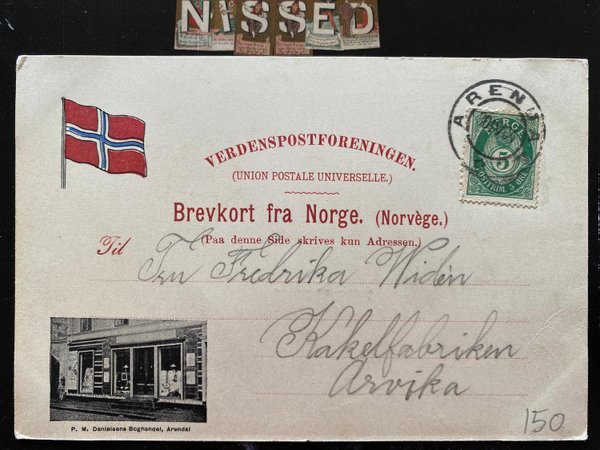 NISSED
VERDENSPOSTFORENINGEN.
(UNION POSTALE UNIVERSELLE.)
Brevkort fra Norge. (Norvège.)
(Paa denne Side skrives kun Adressen.)
Til
Fru Fredrika Widén
Kakelfabriken
Arvika
ARENDAL
NORGE
5
POSTFRIM 5 ØRE
P. M. Danielsens Boghandel, Arendal
150